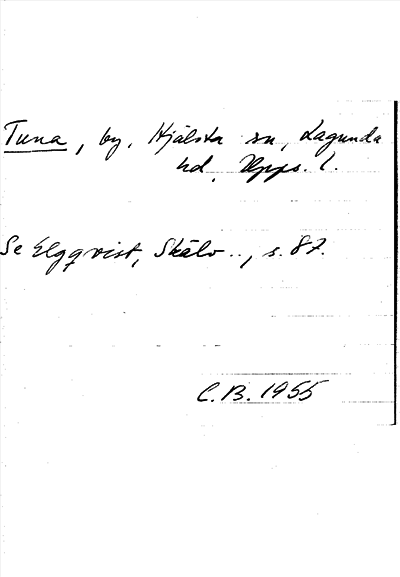 Tuna, by, Hjälsta sn, Lagunda
hd, Upps. l.
Se Elgqvist, Skälv.., s. 87.
C.B. 1955